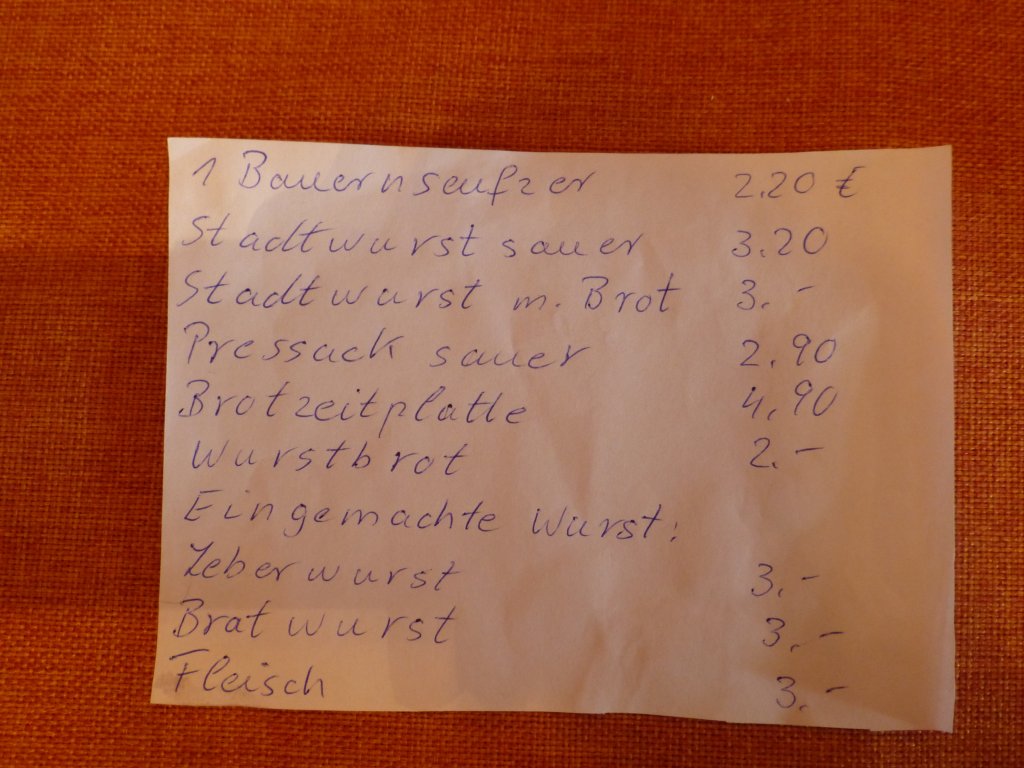 1 Bauernseufzer 2.20 €
Stadtwurst sauer 3.20
Stadtwurst m. Brot 3.-
Pressack sauer 2.90
Brotzeitplatte 4.90
Wurstbrot 2.-
Eingemachte Wurst:
Leberwurst 3.-
Bratwurst 3.-
Fleisch 3.-